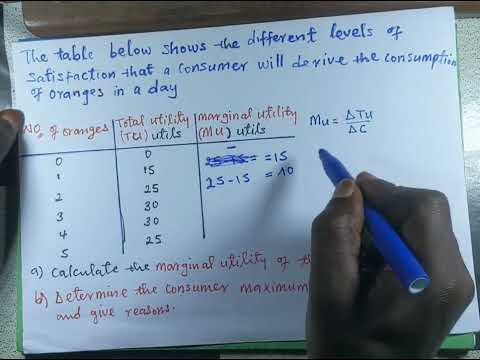 The table below shows the different levels of
satisfaction that a consumer will derive the consumption
of oranges in a day
NO. of oranges Total utility (TU) utils marginal utility (MU) utils
Mu = ΔTu / ΔC
0 0 -
1 15 = = 15
2 25 25-15 = 10
3 30
4 30
5 25
a) Calculate the marginal utility of th
b) Determine the consumer maximum
and give reasons.